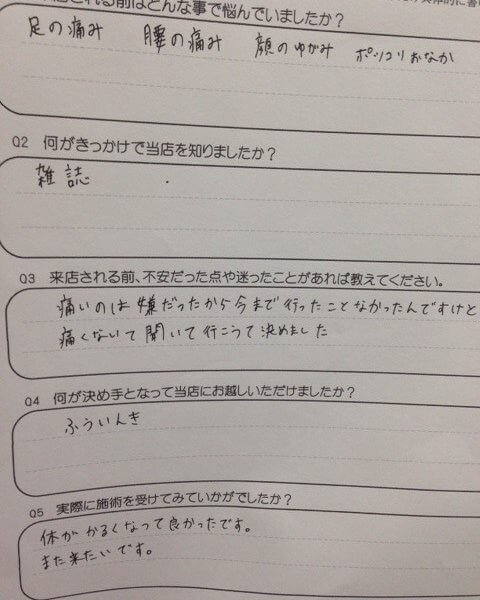 される前はどんな事で悩んでいましたか？
足の痛み 腰の痛み 顔のゆがみ ポッコリおなか
Q2 何がきっかけで当店を知りましたか？
雑誌
Q3 来店される前、不安だった点や迷ったことがあれば教えてください。
痛いのは嫌だったから今まで行ったことなかったんですけと
痛くないて聞いて行こうて決めました
Q4 何が決め手となって当店にお越しいただけましたか？
ふういんき
Q5 実際に施術を受けてみていかがでしたか？
体がかるくなって良かったです。
また来たいです。